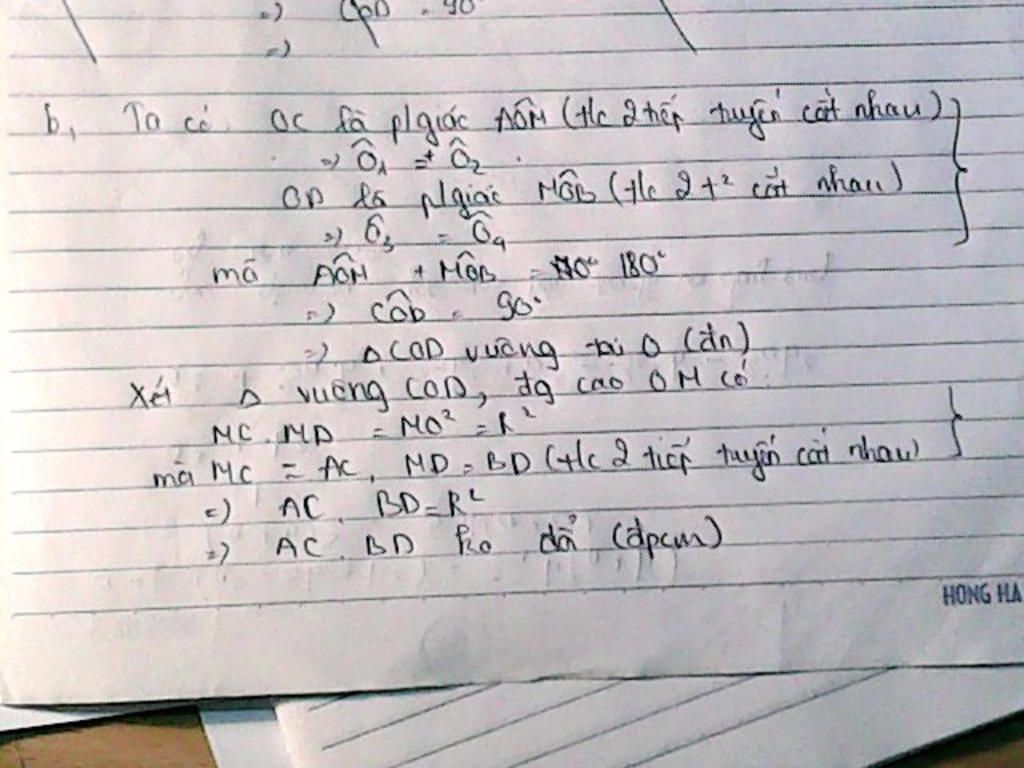 =) COD = 90°
=)
b, Ta có OC là p/giác AÔM (t/c 2 tiếp tuyến cắt nhau)
=) Ô1 = Ô2
OD là p/giác MÔB (t/c 2 t² cắt nhau)
=) Ô3 = Ô4
mà AÔM + MÔB = 180°
=) CÔD = 90°
=) Δ COD vuông tại O (đn)
Xét Δ vuông COD, đg cao OM có
MC . MD = MO² = R²
mà MC = AC, MD = BD (t/c 2 tiếp tuyến cắt nhau)
=) AC . BD = R²
=) AC . BD ko đổi (đpcm)
HONG HA